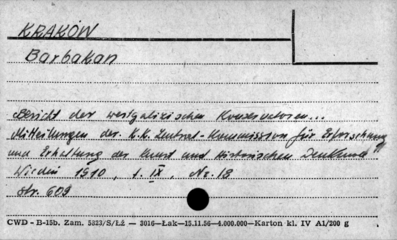 KRAKÓW
Barbakan
Bericht der westgalizischen Konservatoren...
Mitteilungen der K.K. Zentral-Kommission für Erforschung
und Erhaltung der Kunst und Historischen Denkmal
Wiedeń 1910, t. IX, Nr. 18
str. 609
CWD - B-15b. Zam. 5223/S/Łż — 3016—Łak—15.11.56—4.000.000—Karton kl. IV A1/200 g